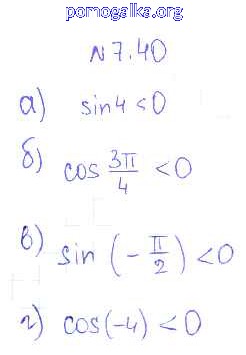 pomogalka.org
N 7.40
а) sin4<0
б) cos 3π/4 <0
в) sin (-π/2) <0
г) cos(-4) <0